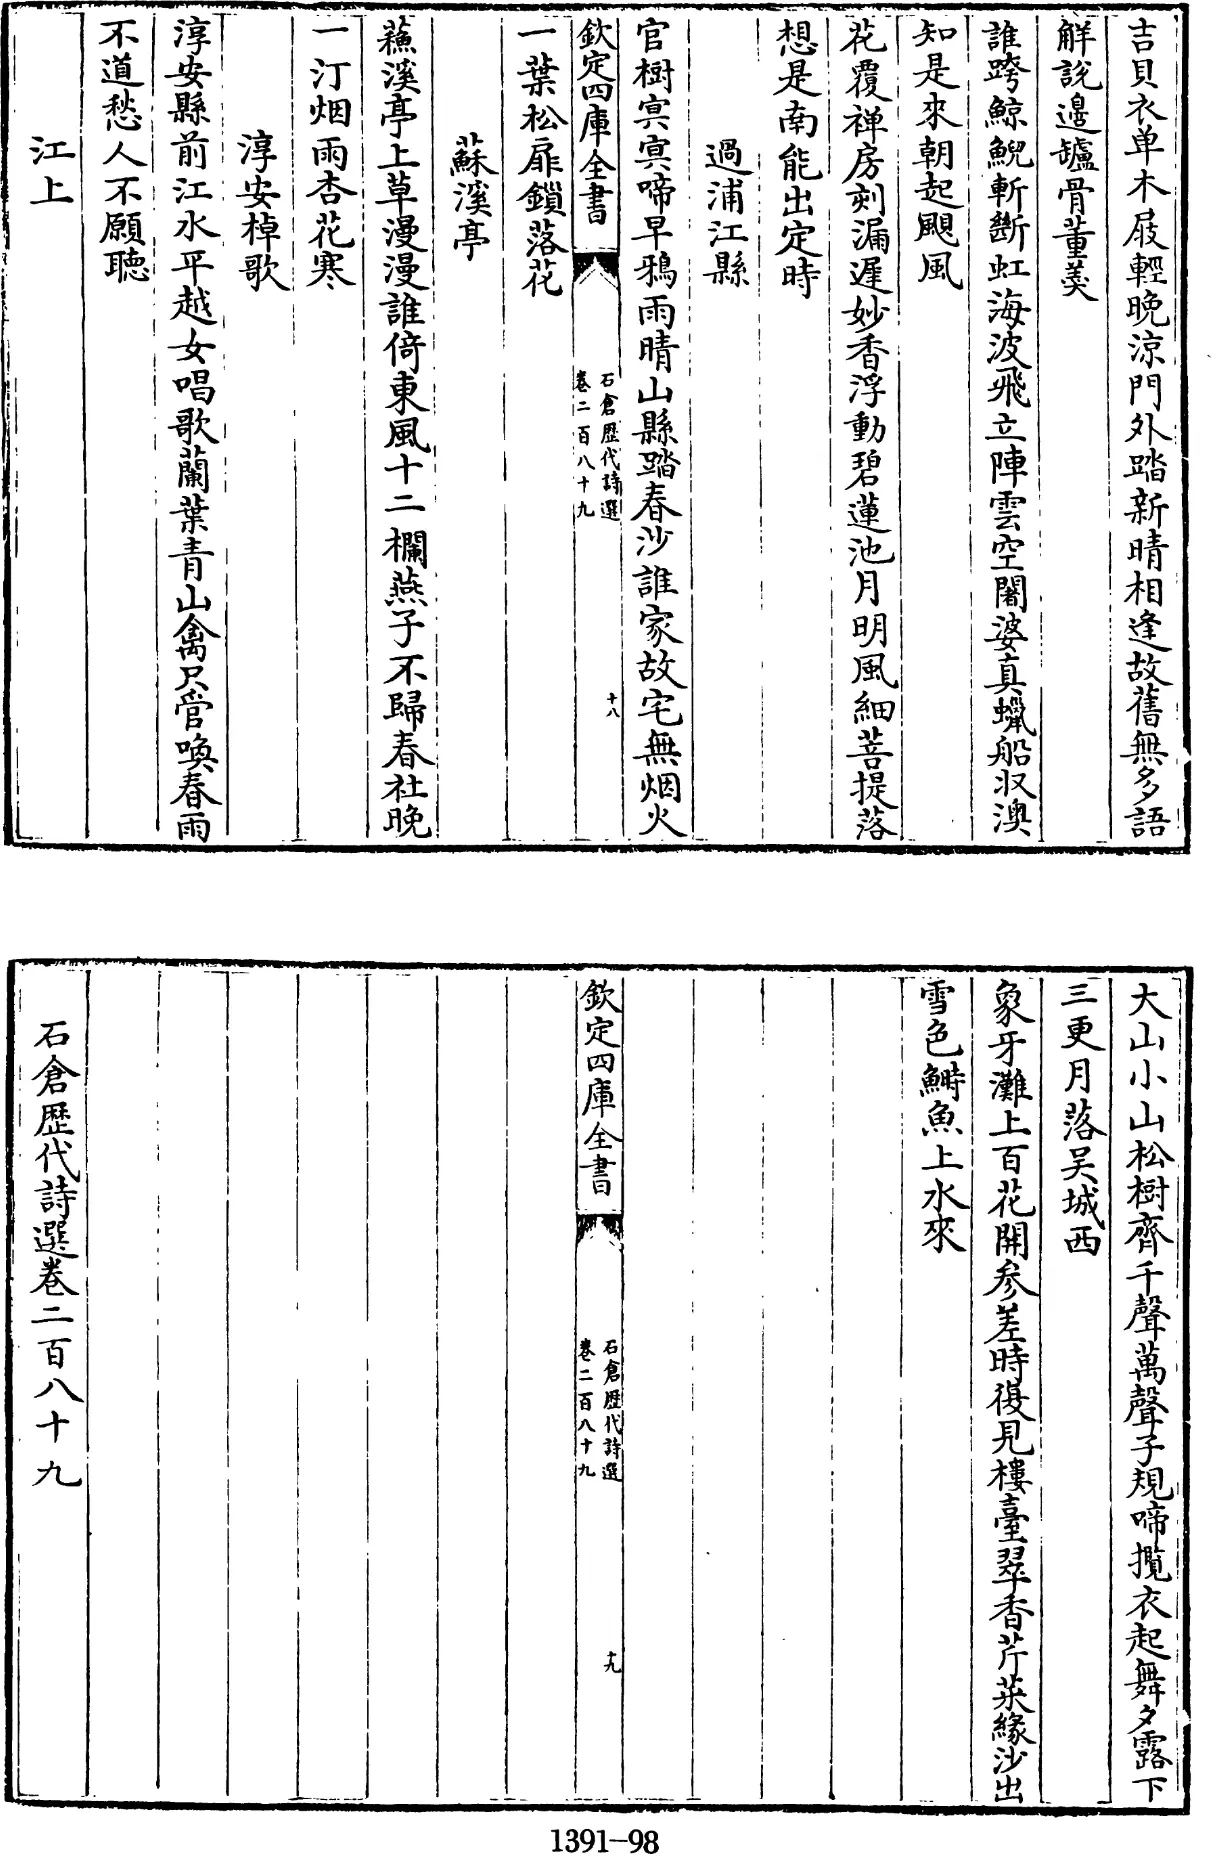 吉貝衣单木屐輕晚涼門外踏新晴相逢故舊無多語
解説邊鑪骨董羮
誰跨鯨鯢斬斷虹海波飛立陣雲空闍婆真蠟船収澳
知是來朝起颶風
花覆禅房刻漏遲妙香浮動碧蓮池月明風細菩提落
想是南能出定時
過浦江縣
官樹㝠㝠啼早鴉雨晴山縣踏春沙誰家故宅無烟火
欽定四庫全書
石倉歴代詩選
卷二百八十九
十八
一葉松扉鎖落花
蘇溪亭
蘓溪亭上草漫漫誰倚東風十二欄燕子不歸春社晚
一汀烟雨杏花寒
淳安棹歌
淳安縣前江水平越女唱歌蘭葉青山禽只管喚春雨
不道愁人不願聽
江上
大山小山松樹齊千聲萬聲子規啼攬衣起舞夕露下
三更月落吴城西
象牙灘上百花開参差時復見樓臺翠香芹菜緣沙出
雪色鰣魚上水來
欽定四庫全書
石倉歴代詩選
卷二百八十九
十九
石倉歴代詩選卷二百八十九
1391-98